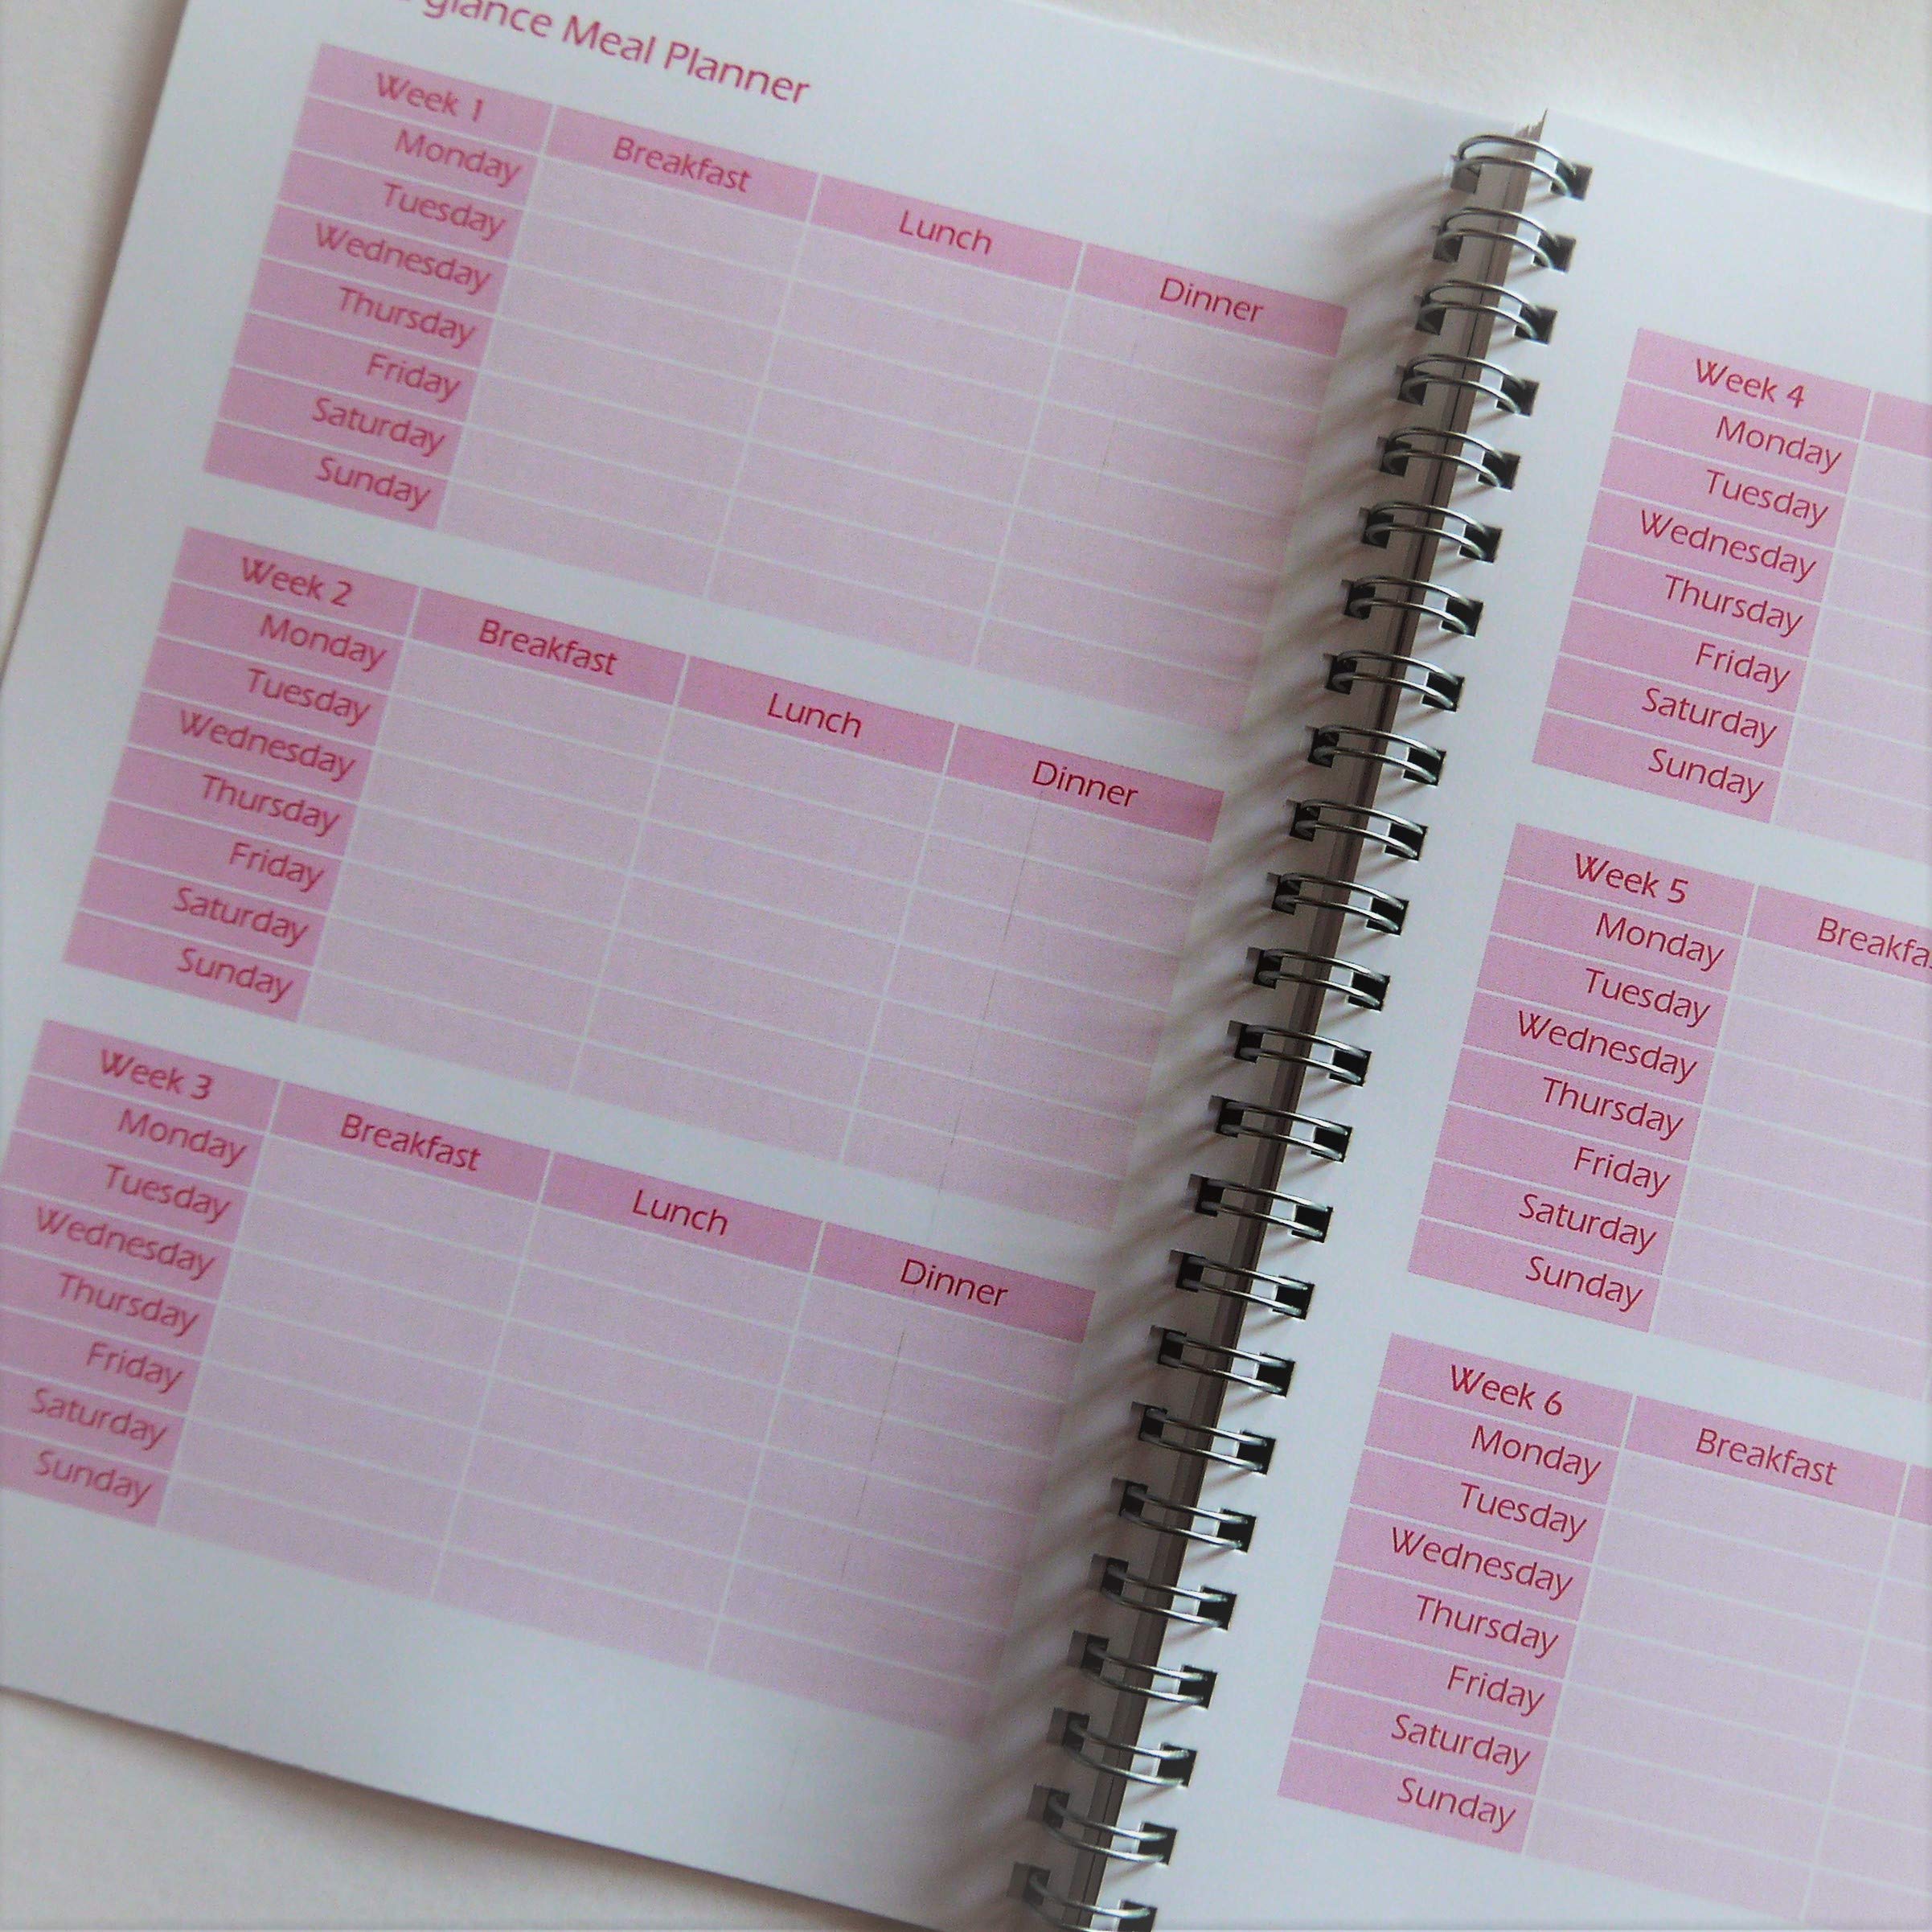 glance Meal Planner
Week 1 Breakfast Lunch Dinner
Monday
Tuesday
Wednesday
Thursday
Friday
Saturday
Sunday
Week 2 Breakfast Lunch Dinner
Monday
Tuesday
Wednesday
Thursday
Friday
Saturday
Sunday
Week 3 Breakfast Lunch Dinner
Monday
Tuesday
Wednesday
Thursday
Friday
Saturday
Sunday
Week 4
Monday
Tuesday
Wednesday
Thursday
Friday
Saturday
Sunday
Week 5 Breakfa
Monday
Tuesday
Wednesday
Thursday
Friday
Saturday
Sunday
Week 6 Breakfast
Monday
Tuesday
Wednesday
Thursday
Friday
Saturday
Sunday